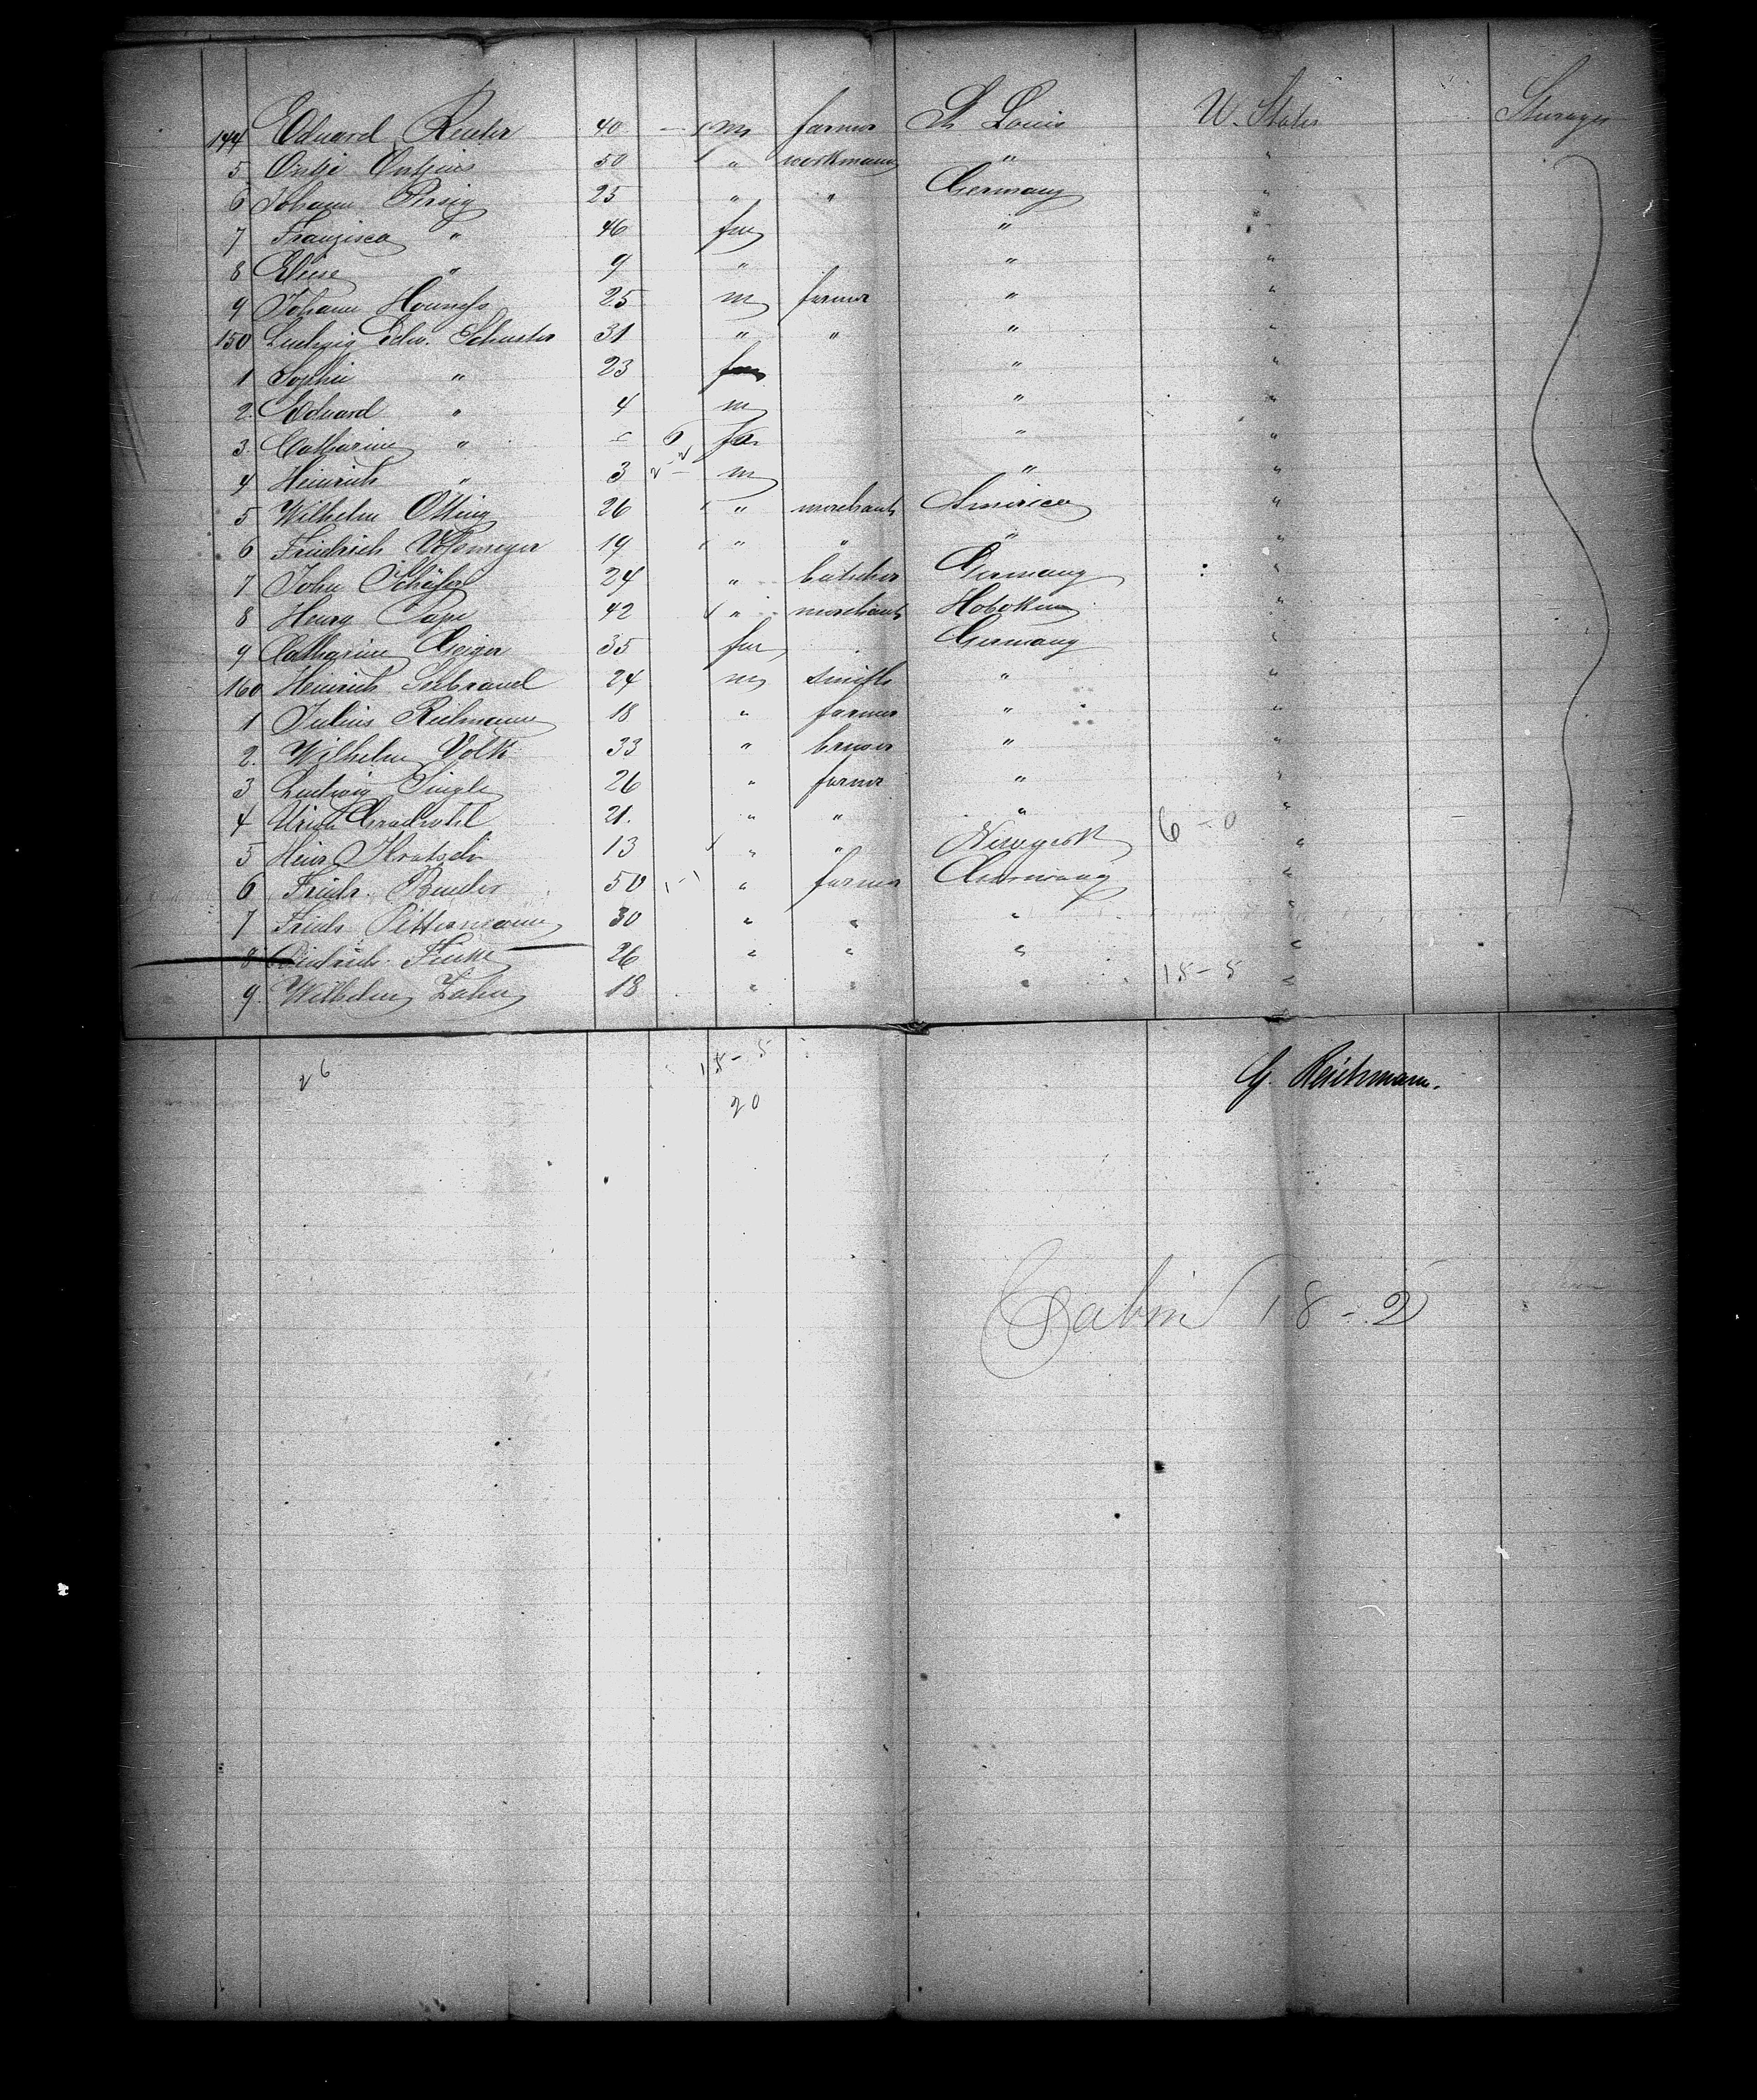 144 Eduard Reuter 40 m farmer St. Louis U. States Steerage
5 Ontje Ontjes 50 " workmann "  "
6 Johann Persig 25 " " Germany "
7 Franzisca " 46 fm " "
8 Elise " 9 " " "
9 Johann 25 m farmer " "
150 Ludwig Edw. Schuster 31 " " " "
1 Sophie " 23 fm " "
2. Eduard " 4 m " "
3. Catharine " 6 fm " "
4 Heinrich " 3 m " "
5 Wilhelm Otting 26 " merchant America "
6 Friedrich 19 " " " "
7 John Schäfer 24 " butcher Germany "
8 Henry Pape 42 " merchant Hoboken "
9 Catharine Geiger 35 fm Germany "
160 Heinrich Seebrand 24 m smith " "
1 Julius Rielmann 18 " farmer " "
2. Wilhelm Volk 33 " brewer " "
3 Ludwig Single 26 " farmer " "
4 21. " " " 6 - 0 "
5 Heinr. 13 " " Newyork "
6 Friedr. Reuter 50 " farmer Germany "
7 Friedr. Pettermann 30 " " " "
8 Dietrich Finke 26 " " " "
9. Wilhelm Zahn 18 " " " 15 - 5 "
26 15 - 5 G. Reichmann.
20
Cabin 18 - 2